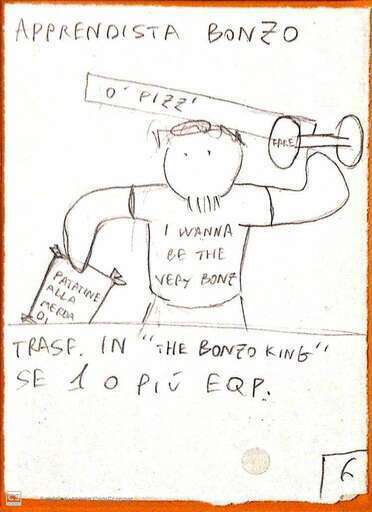 APPRENDISTA BONZO
O' PIZZ'
FAKE
I WANNA
BE THE
VERY BONZ
PATATINE
ALLA
MERDA
DI
TRASF. IN "THE BONZO KING"
SE 1 O PIÚ EQP.
6